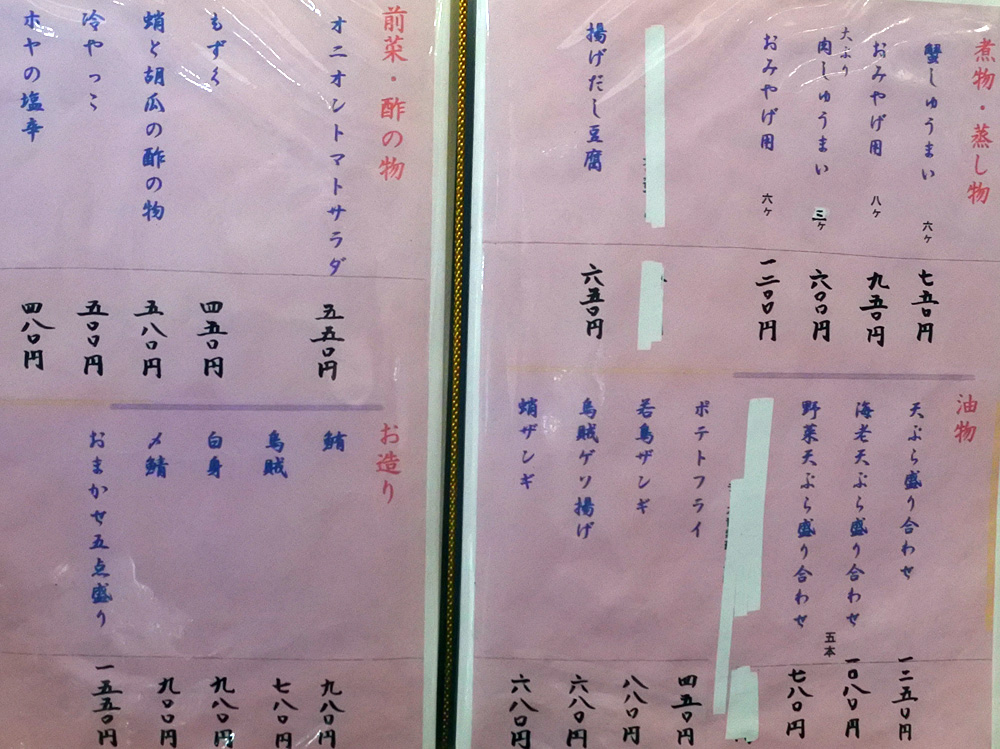 煮物・蒸し物
蟹しゅうまい 六ヶ 七五〇円
おみやげ用 八ヶ 九五〇円
大ぶり
肉しゅうまい 三ヶ 六〇〇円
おみやげ用 六ヶ 一二〇〇円
揚げだし豆腐 六五〇円
油物
天ぷら盛り合わせ 一二五〇円
海老天ぷら盛り合わせ 五本 一〇八〇円
野菜天ぷら盛り合わせ 七八〇円
ポテトフライ 四五〇円
若鳥ザンギ 八八〇円
烏賊ゲソ揚げ 六八〇円
蛸ザンギ 六八〇円
前菜・酢の物
オニオントマトサラダ 五五〇円
もずく 四五〇円
蛸と胡瓜の酢の物 五八〇円
冷やっこ 五〇〇円
ホヤの塩辛 四八〇円
お造り
鮪 九八〇円
烏賊 七八〇円
白身 九八〇円
〆鯖 九〇〇円
おまかせ五点盛り 一五五〇円